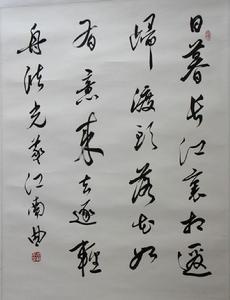 日暮長江裏相邀
歸渡頭落花如
有意來去逐輕
舟儲光羲江南曲